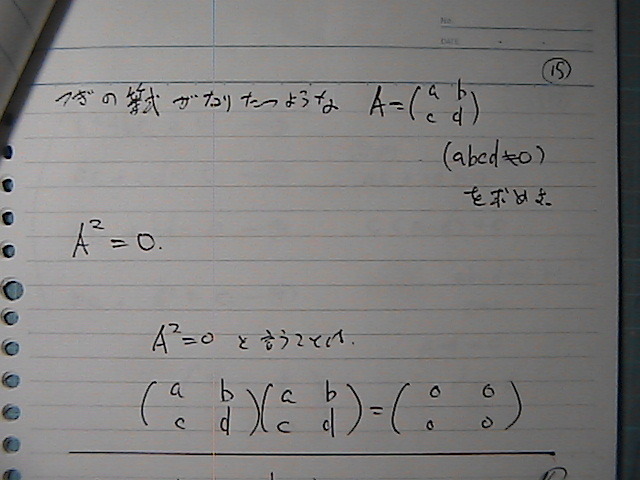 No.
DATE
⑮
つぎの等式がなりたつような A=(a b
c d)
(abcd≠0)
を求めよ
A²=0.
A²=0 と言うことは.
(a b
c d)(a b
c d)=(0 0
0 0)